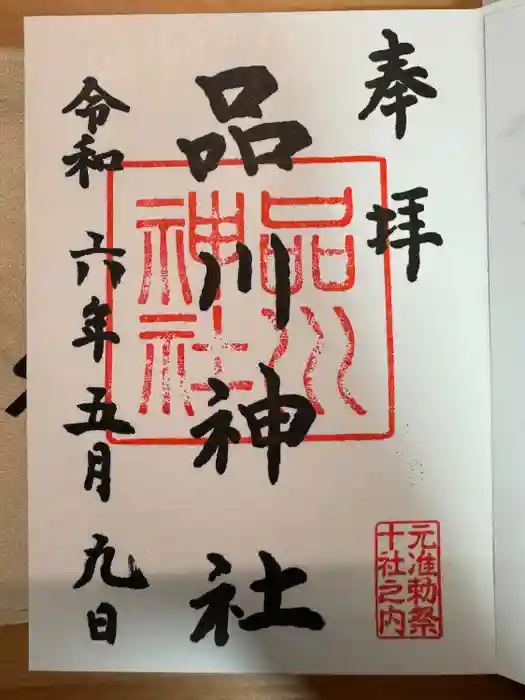 奉拝
品川神社
品川
神社
令和六年五月九日
元准勅祭
十社之内